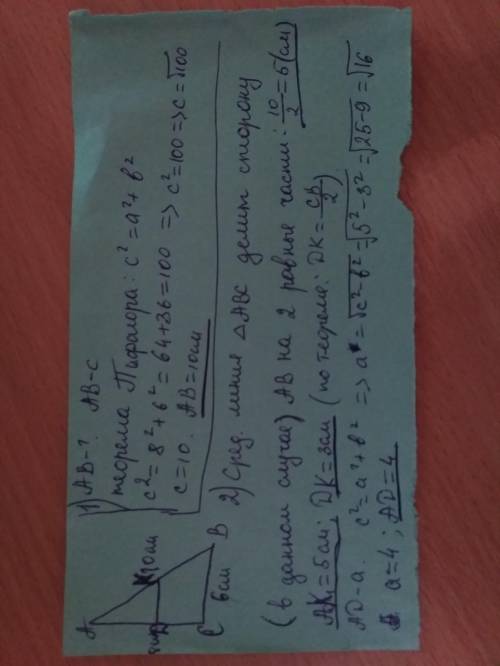 A
8см
D
K
10см
C
6см
B
1) AB-? AB-c
теорема Пифагора: c²=a²+b²
c²=8²+6²=64+36=100 => c²=100 => c=√100
c=10. AB=10см
2) Сред. линия △ABC делит сторону
(в данном случае) AB на 2 равные части: 10/2=5(см)
AK=5см; DK=3см (по теореме: DK=CB/2)
AD-a. c²=a²+b² => a=√c²-b²=√5²-3²=√25-9=√16
a=4; AD=4